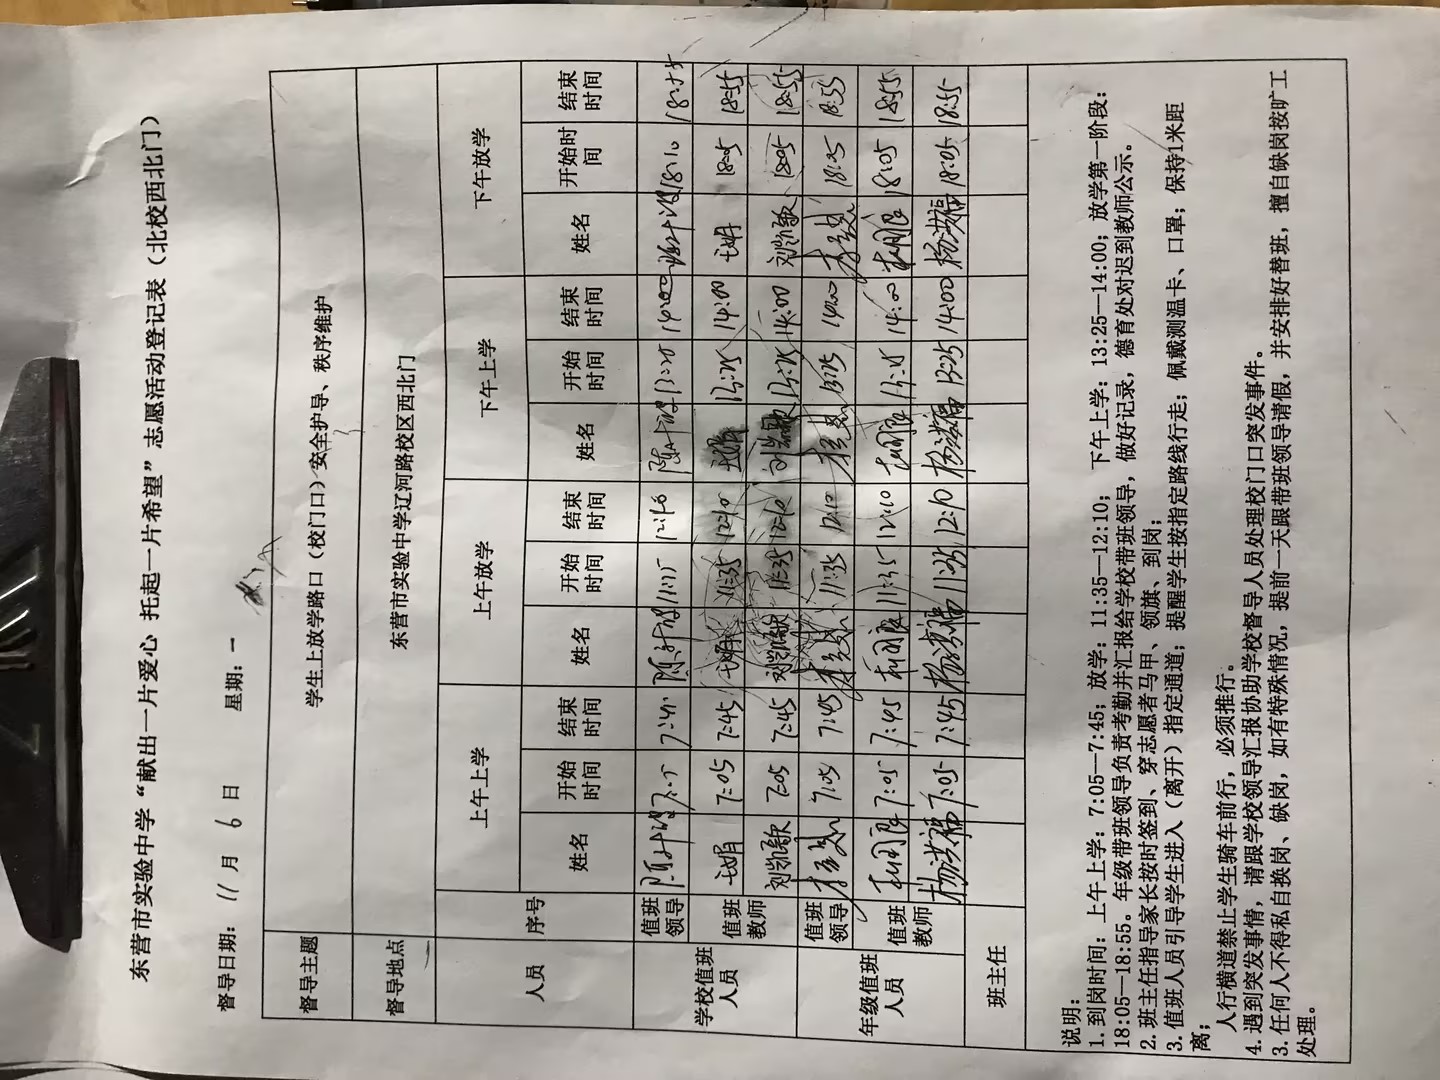 东营市实验中学“献出一片爱心 托起一片希望”志愿活动登记表（北校西北门）
督导日期： 11 月 6 日 星期：一
督导主题 学生上放学路口（校门口）安全护导、秩序维护
督导地点 东营市实验中学辽河路校区西北门
人员 序号 上午上学 上午放学 下午上学 下午放学
姓名 开始时间 结束时间 姓名 开始时间 结束时间 姓名 开始时间 结束时间 姓名 开始时间 结束时间
学校值班人员 值班领导 14:00 18:10
值班教师 7:05 7:45 11:35 12:10 13:25 14:00 18:05 18:55
刘凯歌 7:05 7:45 刘凯歌 11:35 12:10 13:25 14:00 刘凯歌 18:05 18:55
年级值班人员 值班领导 7:05 7:45 11:35 12:10 13:25 14:00 18:05 18:55
值班教师 7:05 7:45 11:35 12:10 13:25 14:00 18:05 18:55
杨洪福 7:05 7:45 杨洪福 11:35 12:10 杨洪福 13:25 14:00 杨洪福 18:05 18:55
班主任
说明：
1. 到岗时间：上午上学：7:05—7:45；放学：11:35—12:10； 下午上学：13:25—14:00；放学第一阶段：
18:05—18:55。年级带班领导负责考勤并汇报给学校带班领导，做好记录，德育处对迟到教师公示。
2. 班主任指导家长按时签到、穿志愿者马甲、领旗、到岗；
3. 值班人员引导学生进入（离开）指定通道；提醒学生按指定路线行走；佩戴测温卡、口罩；保持1米距
离；
人行横道禁止学生骑车前行，必须推行。
4. 遇到突发事情，请跟学校领导汇报协助学校督导人员处理校门口突发事件。
3. 任何人不得私自换岗、缺岗，如有特殊情况，提前一天跟带班领导请假，并安排好替班，擅自缺岗按旷工
处理。